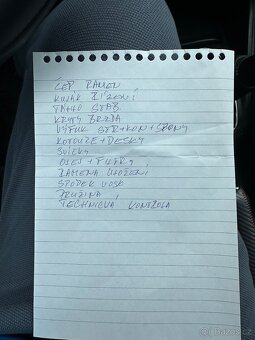 ČEP RAMEN
KULAK ŘÍZENÍ
TÁHLO STAB
KRYTY BRZDA
VÝFUK STR+KON+SPONY
KOTOUČE+DESKY
SVÍČKY
OLEJ+FILTRY
RAMENA ULOŽENÍ
SPODEK VOSK
PRUŽINA
TECHNICKÁ KONTROLA
bazos.cz